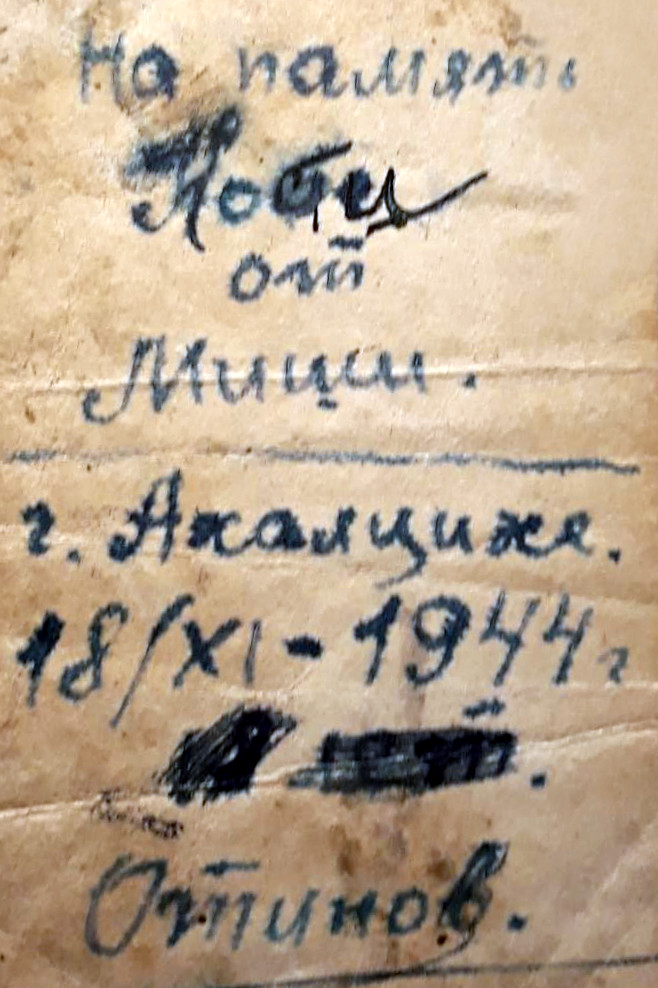 На память
от
г. Ахалцихе.
18/XI-1944г
Отинов.